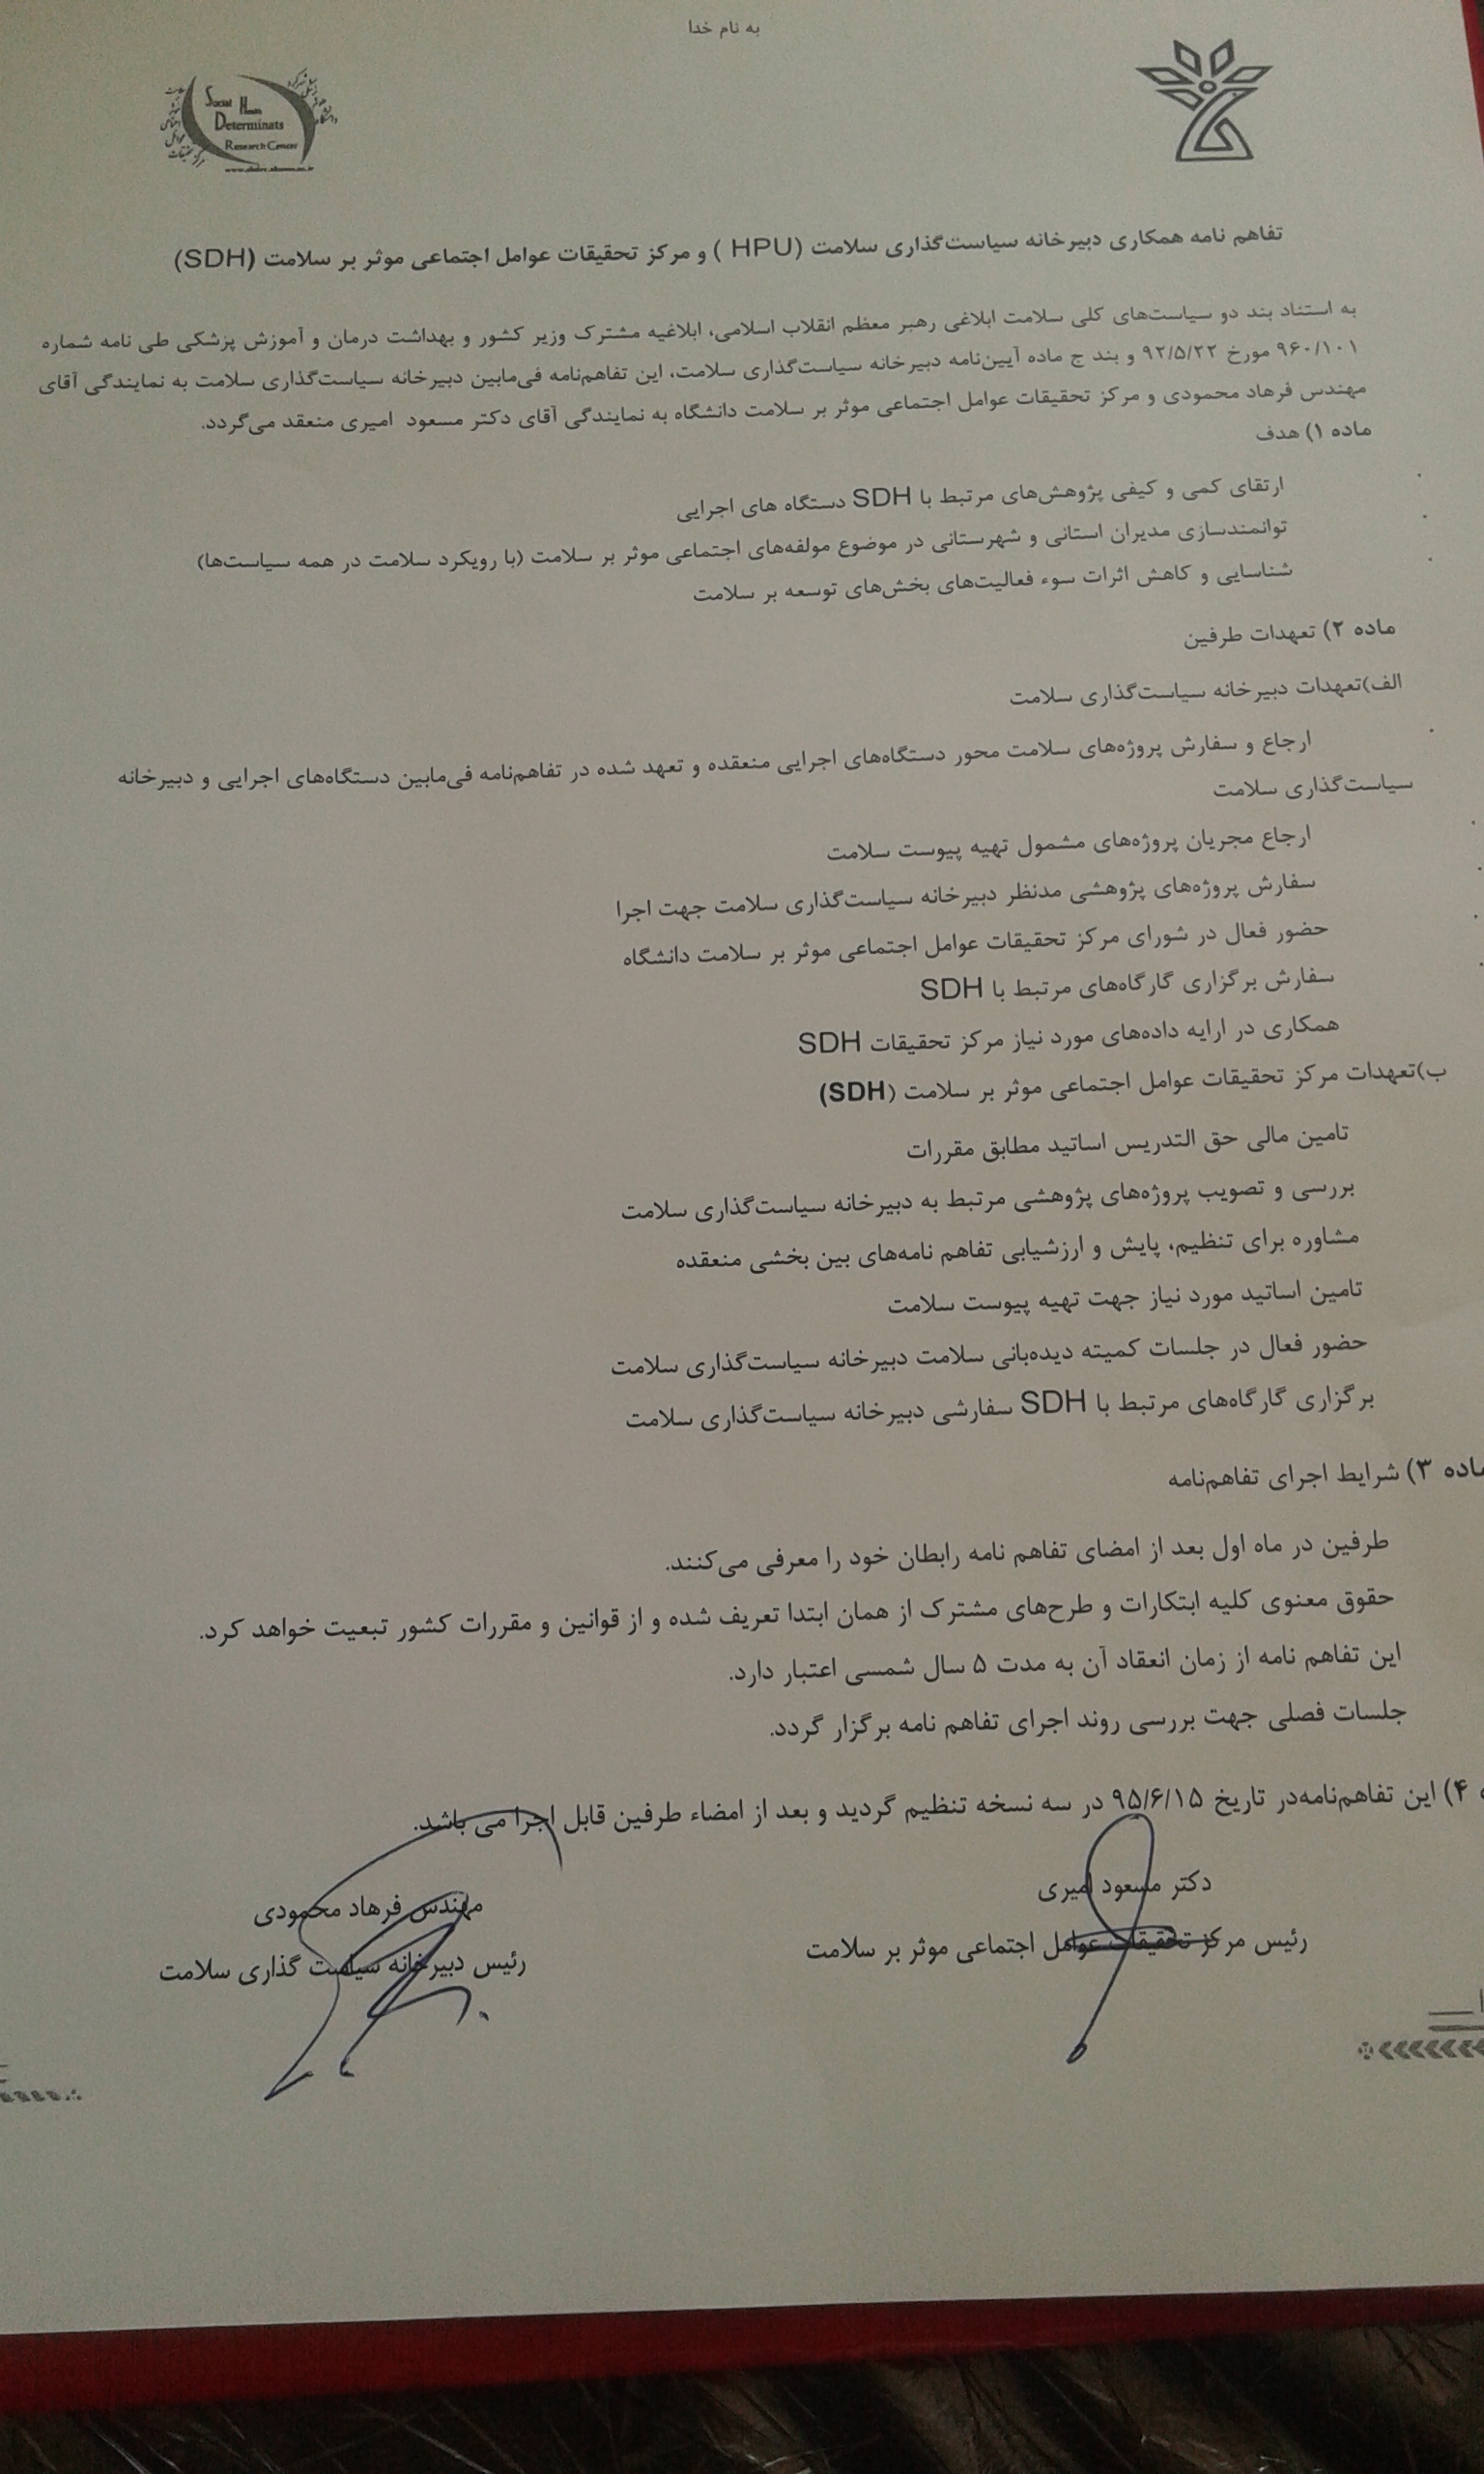 به نام خدا
Social Human
Determinats
Research Center
تفاهم نامه همکاری دبیرخانه سیاست‌گذاری سلامت (HPU ) و مرکز تحقیقات عوامل اجتماعی موثر بر سلامت (SDH)
به استناد بند دو سیاست‌های کلی سلامت ابلاغی رهبر معظم انقلاب اسلامی، ابلاغیه مشترک وزیر کشور و بهداشت درمان و آموزش پزشکی طی نامه شماره
۹۶۰/۱۰۱ مورخ ۹۲/۵/۲۲ و بند ج ماده آیین‌نامه دبیرخانه سیاست‌گذاری سلامت، این تفاهم‌نامه فی‌مابین دبیرخانه سیاست‌گذاری سلامت به نمایندگی آقای
مهندس فرهاد محمودی و مرکز تحقیقات عوامل اجتماعی موثر بر سلامت دانشگاه به نمایندگی آقای دکتر مسعود امیری منعقد می‌گردد.
ماده ۱) هدف
ارتقای کمی و کیفی پژوهش‌های مرتبط با SDH دستگاه های اجرایی
توانمندسازی مدیران استانی و شهرستانی در موضوع مولفه‌های اجتماعی موثر بر سلامت (با رویکرد سلامت در همه سیاست‌ها)
شناسایی و کاهش اثرات سوء فعالیت‌های بخش‌های توسعه بر سلامت
ماده ۲) تعهدات طرفین
الف)تعهدات دبیرخانه سیاست‌گذاری سلامت
ارجاع و سفارش پروژه‌های سلامت محور دستگاه‌های اجرایی منعقده و تعهد شده در تفاهم‌نامه فی‌مابین دستگاه‌های اجرایی و دبیرخانه
سیاست‌گذاری سلامت
ارجاع مجریان پروژه‌های مشمول تهیه پیوست سلامت
سفارش پروژه‌های پژوهشی مدنظر دبیرخانه سیاست‌گذاری سلامت جهت اجرا
حضور فعال در شورای مرکز تحقیقات عوامل اجتماعی موثر بر سلامت دانشگاه
سفارش برگزاری گارگاه‌های مرتبط با SDH
همکاری در ارایه داده‌های مورد نیاز مرکز تحقیقات SDH
ب)تعهدات مرکز تحقیقات عوامل اجتماعی موثر بر سلامت (SDH)
تامین مالی حق التدریس اساتید مطابق مقررات
بررسی و تصویب پروژه‌های پژوهشی مرتبط به دبیرخانه سیاست‌گذاری سلامت
مشاوره برای تنظیم، پایش و ارزشیابی تفاهم نامه‌های بین بخشی منعقده
تامین اساتید مورد نیاز جهت تهیه پیوست سلامت
حضور فعال در جلسات کمیته دیده‌بانی سلامت دبیرخانه سیاست‌گذاری سلامت
برگزاری گارگاه‌های مرتبط با SDH سفارشی دبیرخانه سیاست‌گذاری سلامت
ماده ۳) شرایط اجرای تفاهم‌نامه
طرفین در ماه اول بعد از امضای تفاهم نامه رابطان خود را معرفی می‌کنند.
حقوق معنوی کلیه ابتکارات و طرح‌های مشترک از همان ابتدا تعریف شده و از قوانین و مقررات کشور تبعیت خواهد کرد.
این تفاهم نامه از زمان انعقاد آن به مدت ۵ سال شمسی اعتبار دارد.
جلسات فصلی جهت بررسی روند اجرای تفاهم نامه برگزار گردد.
ه ۴) این تفاهم‌نامه‌در تاریخ ۹۵/۶/۱۵ در سه نسخه تنظیم گردید و بعد از امضاء طرفین قابل اجرا می باشد.
دکتر مسعود امیری
رئیس مرکز تحقیقات عوامل اجتماعی موثر بر سلامت
مهندس فرهاد محمودی
رئیس دبیرخانه سیاست گذاری سلامت